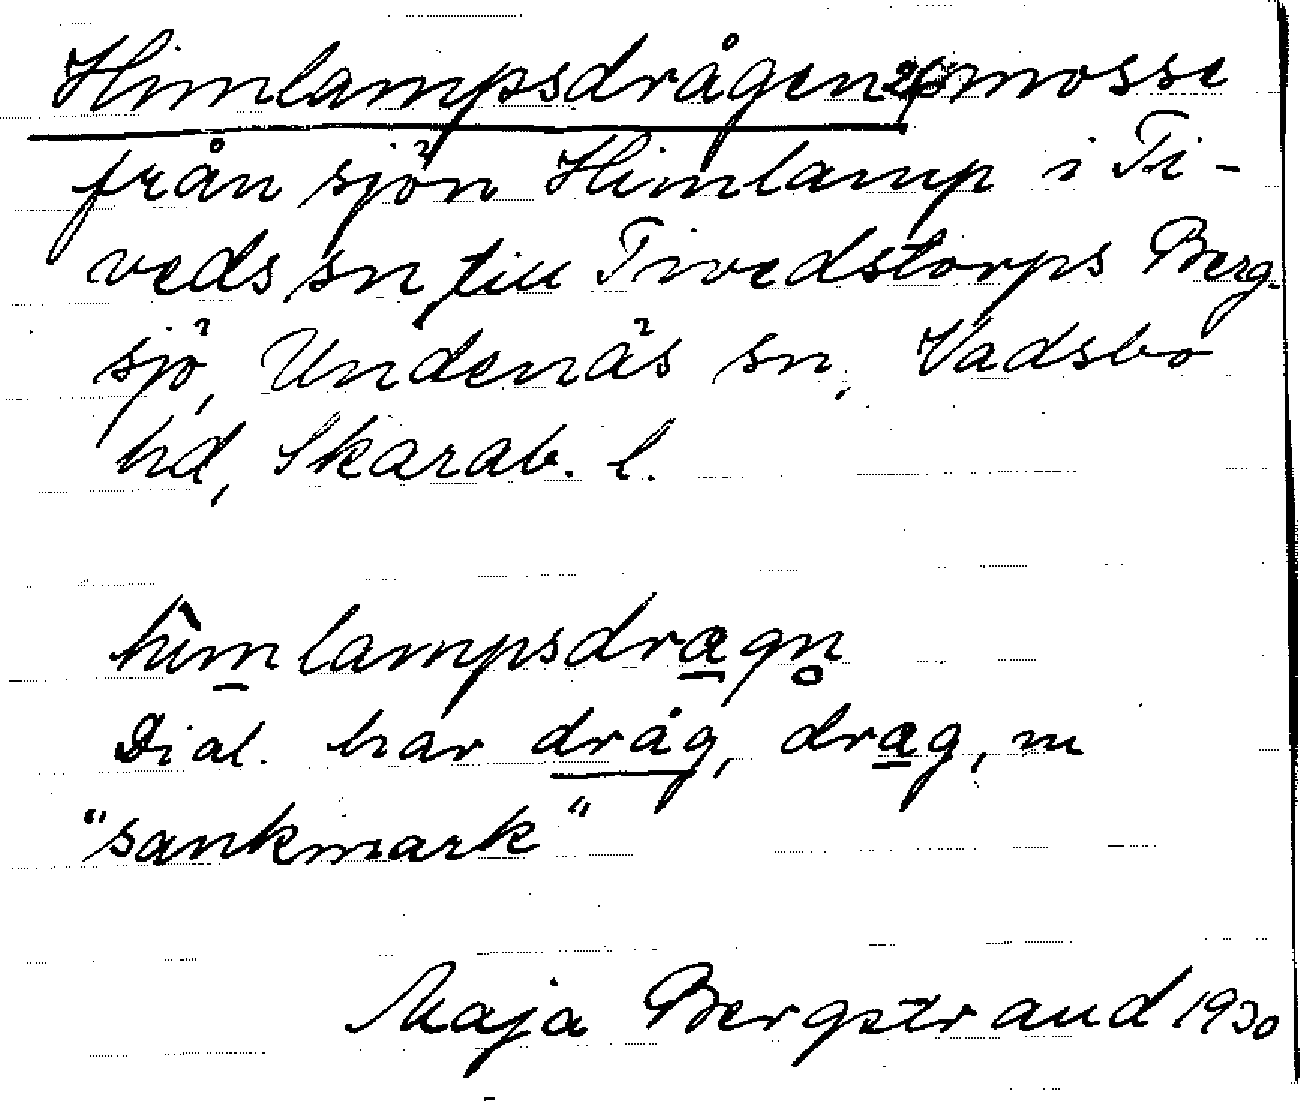 Himlampsdrågen mosse
från sjön Himlamp i Ti-
veds sn till Tivedstorps Berg-
sjö, Undenäs sn, Vadsbo
hd, Skarab. l.
hìmlampsdrægn̥
Dial. har dråg, dræg, m
"sankmark"
Maja Bergstrand 1930